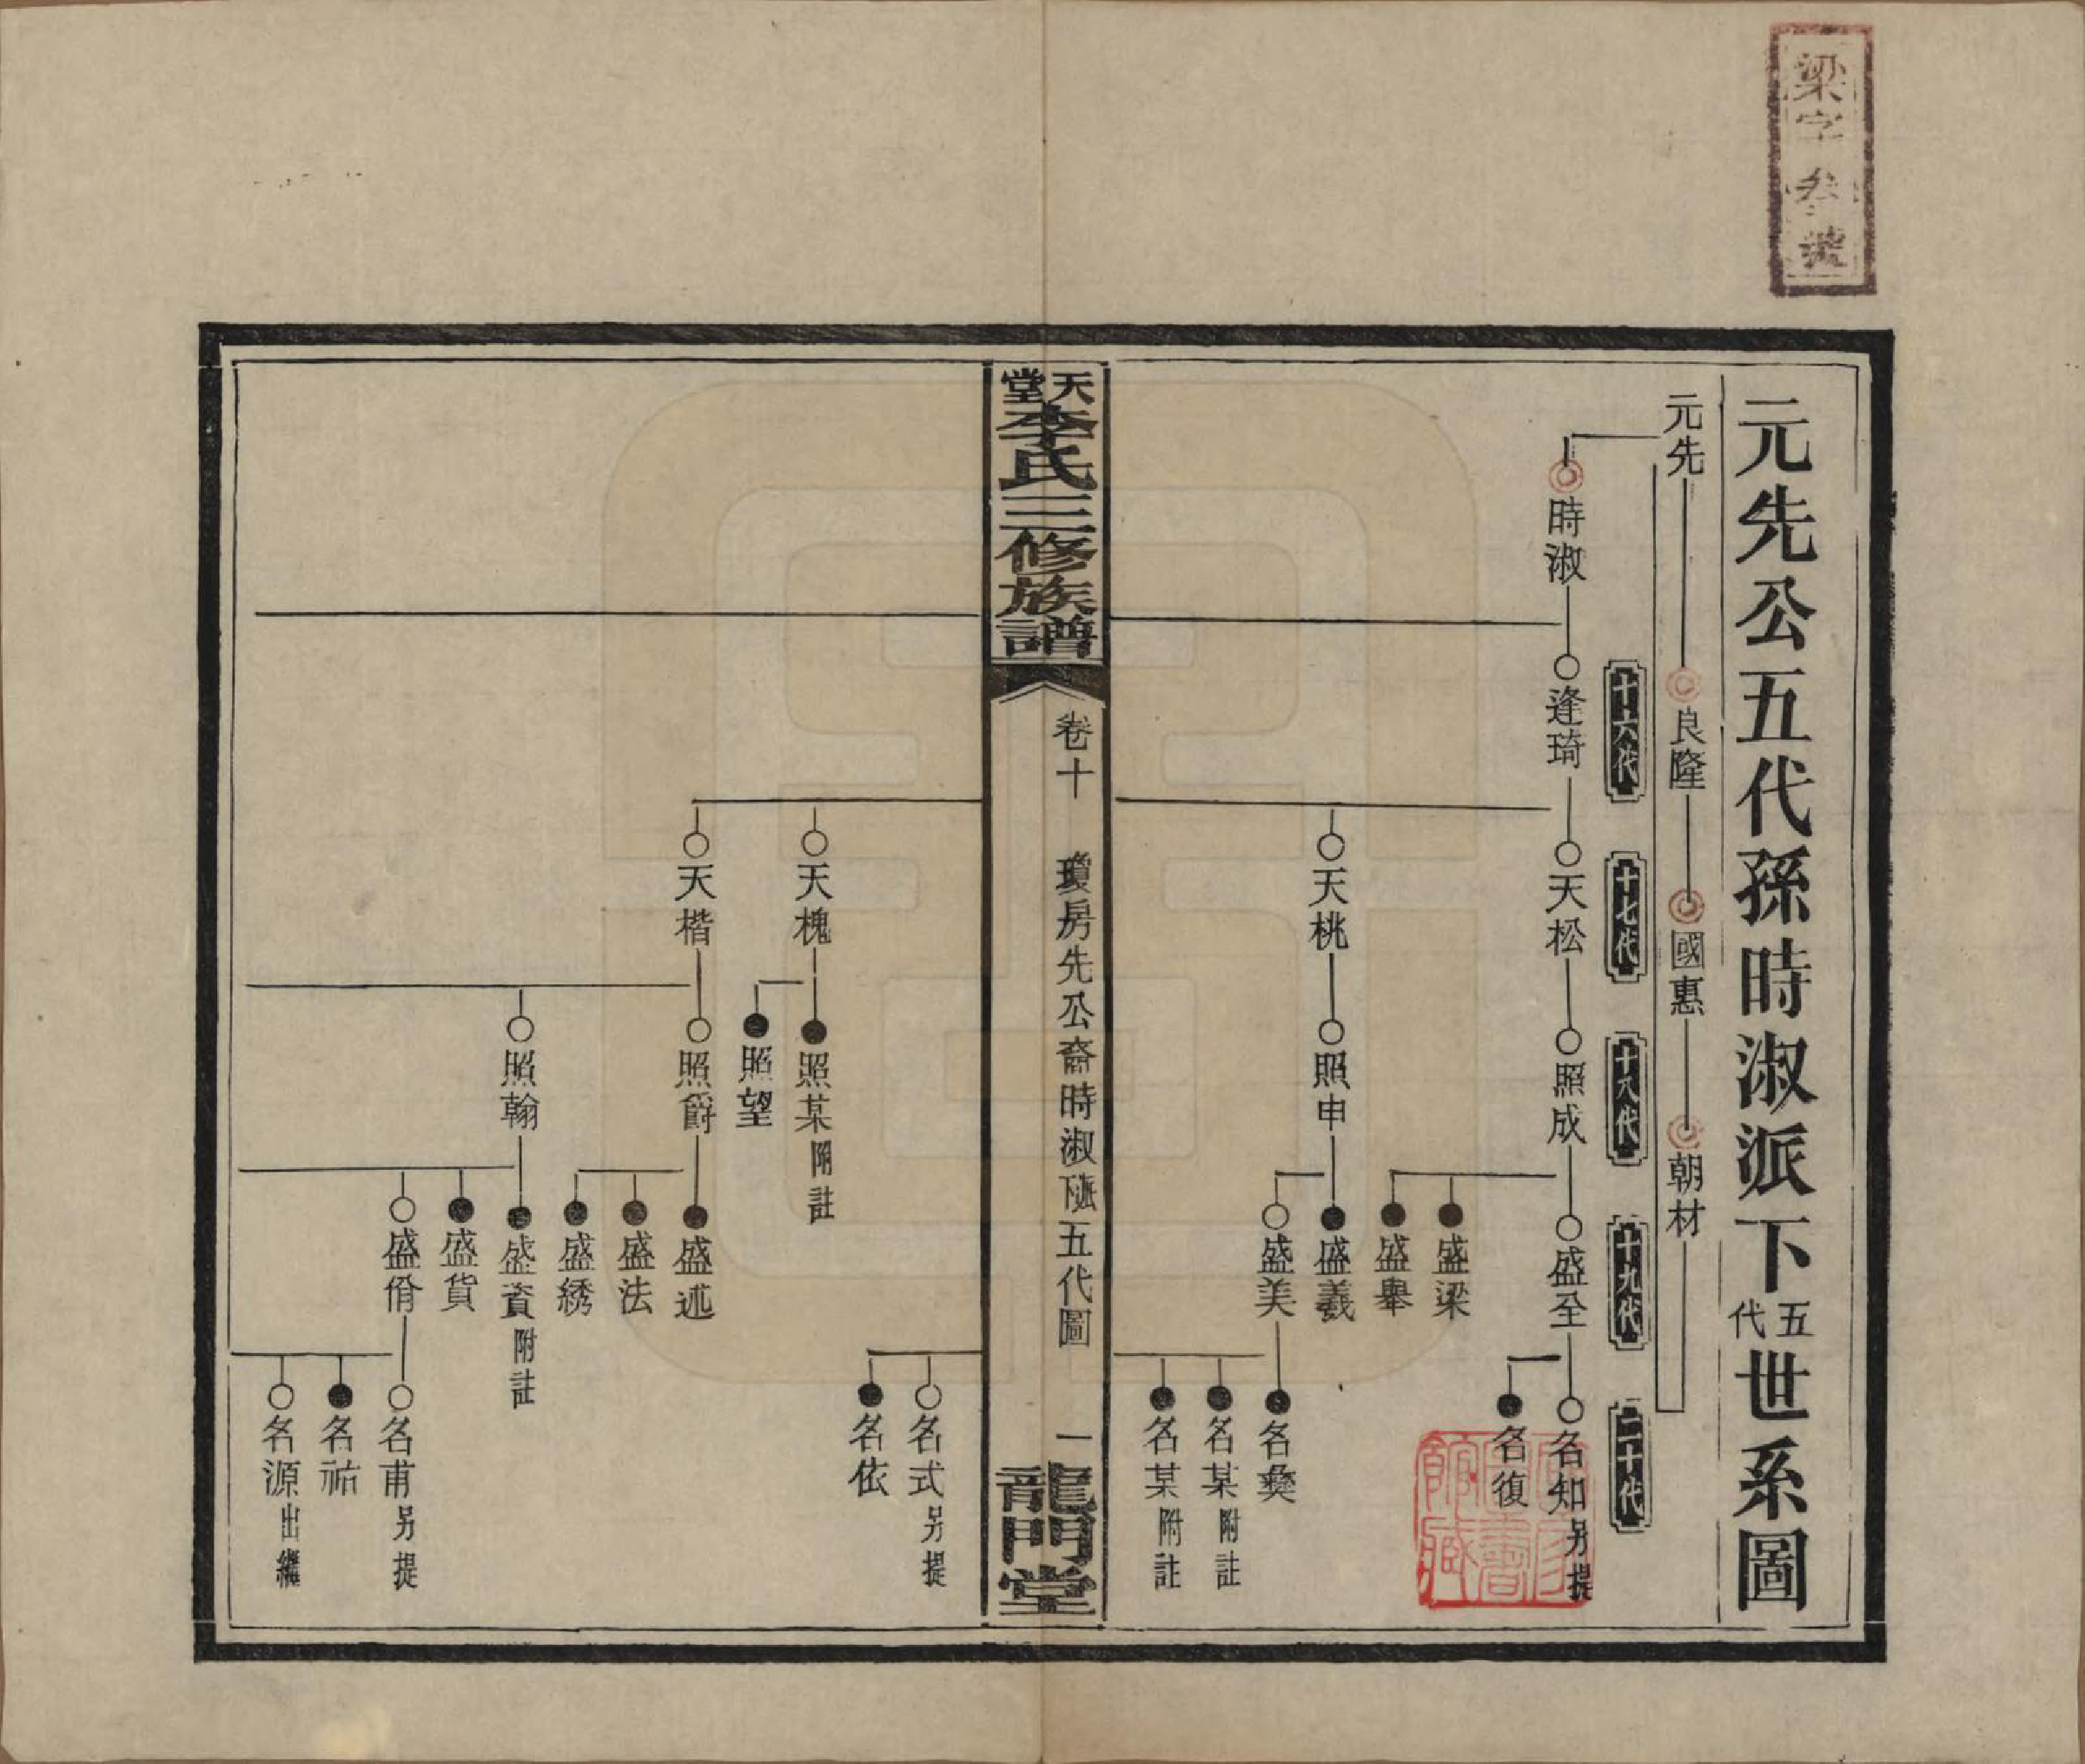 梁字叁號
元先公五代孫時淑派下五代世系圖
元先 良隆 國惠 朝材
十六代 十七代 十八代 十九代 二十代
時淑 逢琦 天松 照成 盛至 名知 另提
名復
盛梁
盛舉
天桃 照申 盛羲
盛美 名彝
名某 附註
名某 附註
天堂李氏三修族譜
卷十 瓊房先公裔時淑派下五代圖 一
龍門堂
名式 另提
名依
天槐 照某 附註
照望
天楷 照爵 盛述
盛法
盛綉
照翰 盛資 附註
盛貨
盛脩 名甫 另提
名祐
名源 出繼